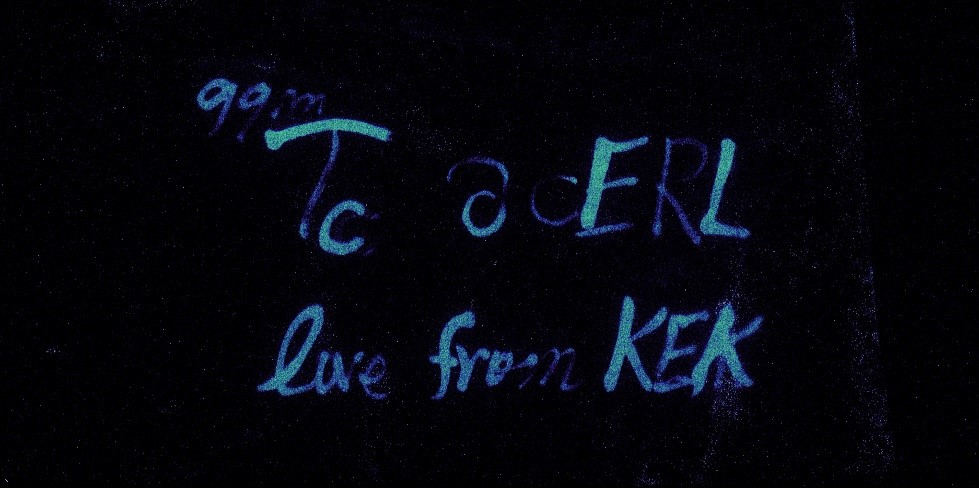 99m
Tc @ cERL
love from KEK